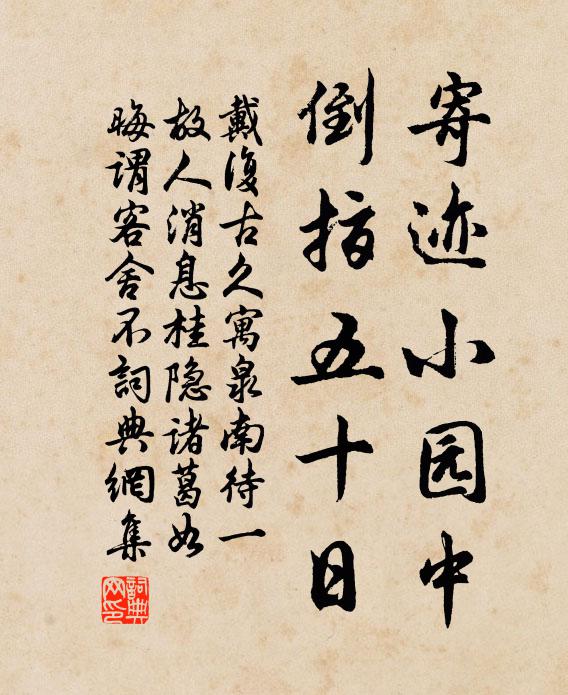 寄迹小园中
倒指五十日
戴復古久寓泉南待一
故人消息桂隐诸葛如
晦谓客舍不詞典網集
詞典網印